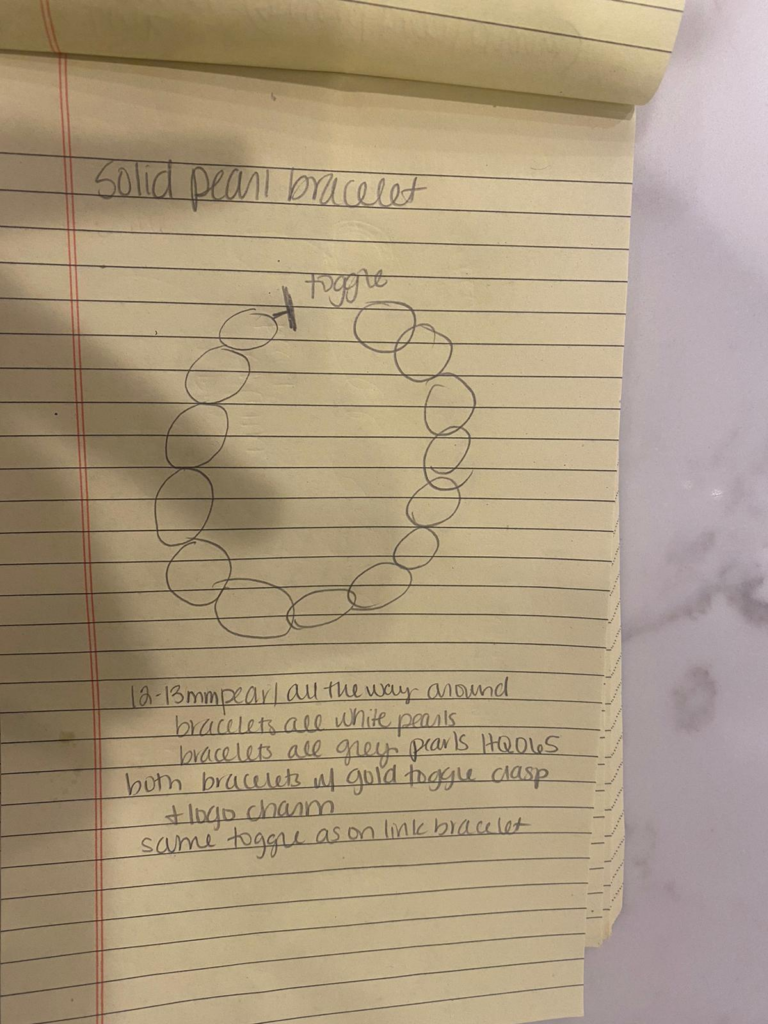 solid pearl bracelet
toggle
12-13mm pearl all the way around
bracelets all white pearls
bracelets all grey pearls HQ065
both bracelets w/ gold toggle clasp
+ logo charm
same toggle as on link bracelet